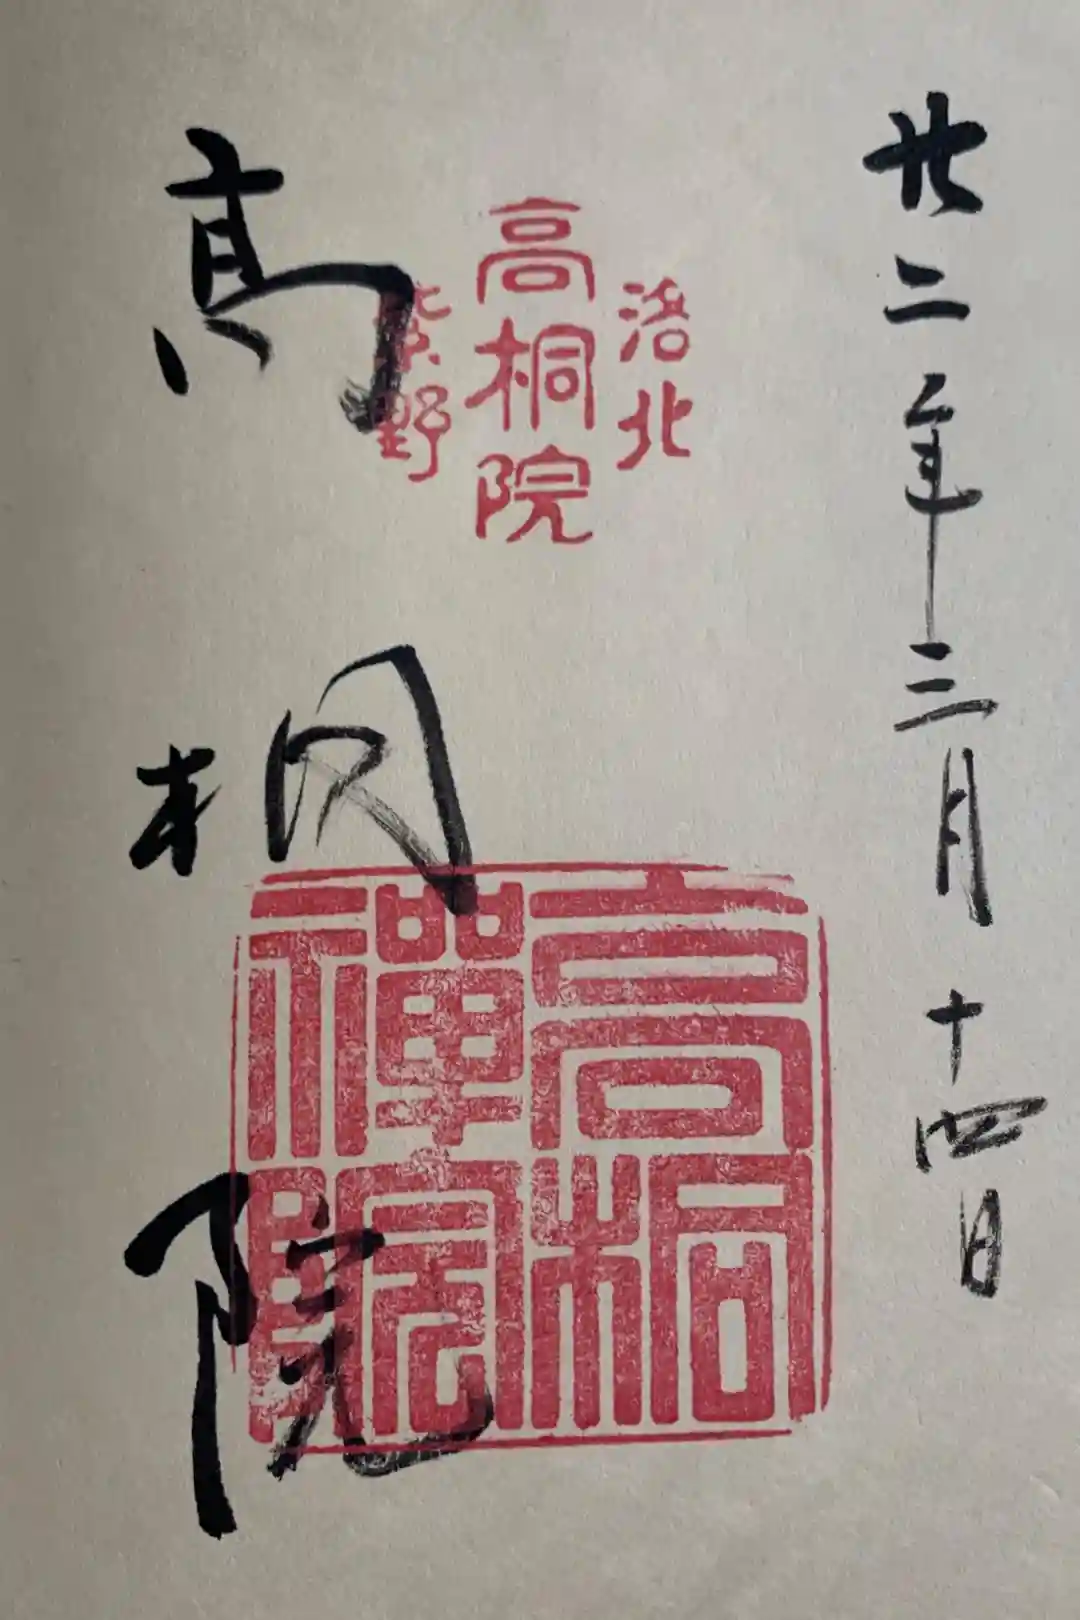 廿二年三月十四日
洛北
高桐院
紫野
高桐院
高桐
禅院